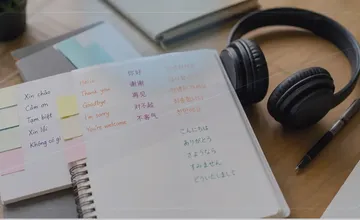 Xin chào
Cảm ơn
Tạm biệt
Xin lỗi
Không có gì
Hello
Thank you
Goodbye
I'm sorry
You're welcome
你好
谢谢
再见
对不起
不客气
こんにちは
ありがとう
さようなら
すみません
どういたしまして